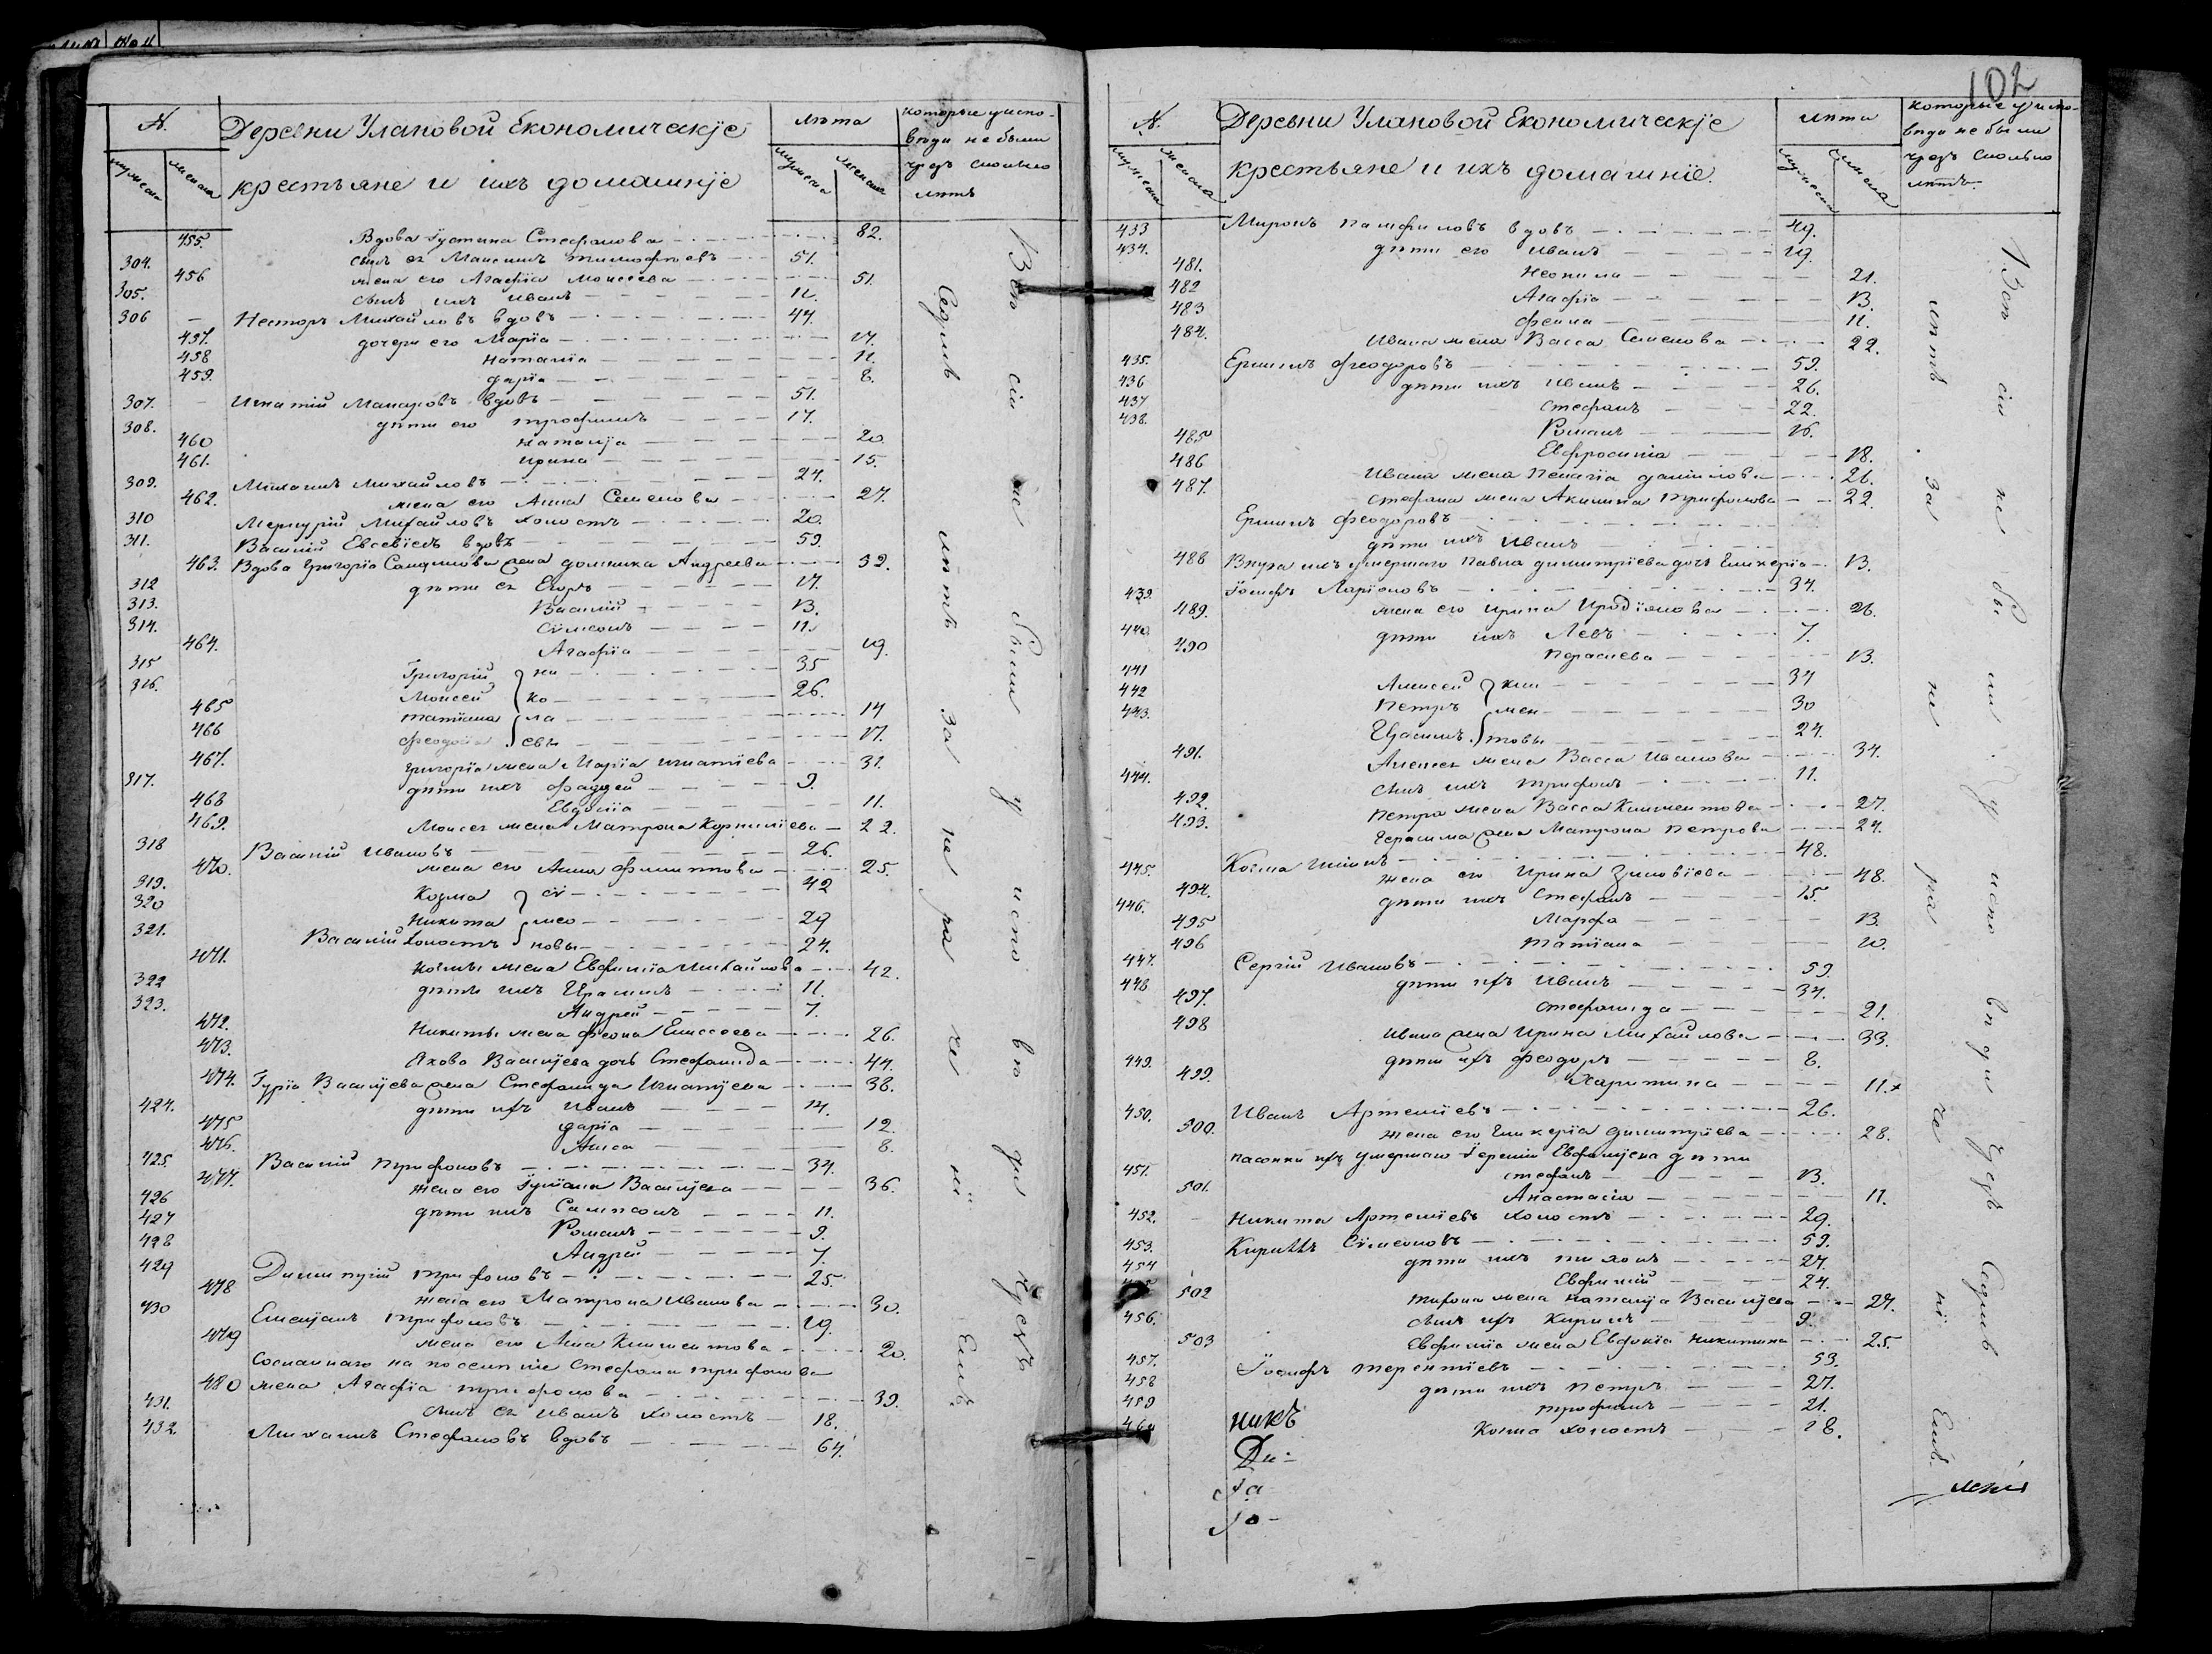 102
N.
Деревни Улановой Економическіе
крестьяне и ихъ домашніе
мужеска
женска
лѣта
мужеска
женска
которые у испо-
вѣди не были
чрезъ сколько
лѣтъ
455. Вдова Іустина Стефанова 82.
304. сынъ ея Максимъ Тимофѣевъ 51.
456 жена его Агафіа Моисеева 51.
305. сынъ ихъ Иванъ 11.
306 Несторъ Михайловъ вдовъ 44.
457. дочери его Марія 14.
458 Наталіа 11.
459. Даріа 8.
307. Игнатій Макаровъ вдовъ 51.
308. дѣти его Трофимъ 17.
460 Наталія 20.
461. Ирина 15.
309. Михаилъ Михайловъ 24.
462. жена его Анна Семенова 27.
310 Меркурій Михайловъ холостъ 20.
311. Василій Евсевіевъ вдовъ 59.
463. Вдова Григоріа жена Домника Андреева 52.
312 дѣти ея Егоръ 17.
313. Василій 13.
314. Сѵмеонъ 11.
464. Агафіа 19.
315 Григорій ни 35
316. Моисей ко 26.
465 Татіана ла 14
466 Феодосіа евы 17.
467. Григоріа жена Маріа Игнатіева 31.
317. дѣти ихъ Фаддей 9.
468 Евдокіа 11.
469. Моисея жена Матрона Корниліева 22.
318 Василій Ивановъ 26.
470. жена его Анна Филиппова 25.
319. Козма сѵ 42
320 Никита мео 29
321. Василій холостъ новы 24.
471. Козмы жена Евфиміа Михайлова 42.
322 дѣти ихъ Герасимъ 11.
323. Андрей 7.
472. Никиты жена Феона Елисеева 26.
473. Якова Василіева дочь Стефанида 44.
474. Гуріа Василіева жена Стефанида Игнатіева 38.
424. дѣти ихъ Иванъ 14.
475 Даріа 12.
476. Анна 8.
425. Василій Трифоновъ 34.
477. жена его Іуліана Василіева 36.
426 дѣти ихъ Сампсонъ 11.
427 Романъ 9.
428 Андрей 7.
429 Димитрій Трифоновъ 25.
478 жена его Матрона Иванова 30.
430 Емеліанъ Трифоновъ 19.
479 жена его Анна Климентова 20.
Сосланнаго на поселеніе Стефана Трифонова
480 жена Агафіа Трифонова 39.
431. сынъ ея Иванъ холостъ 18.
432. Михаилъ Стефановъ вдовъ 64.
Всѣ сіи не были у исповѣди чрезъ
Седмь лѣтъ за нерачениемъ
N.
Деревни Улановой Економическіе
крестьяне и ихъ домашніе.
мужеска
женска
лѣта
мужеска
женска
которые у испо-
вѣди не были
чрезъ сколько
лѣтъ.
433 Миронъ Памфиловъ вдовъ 49.
434. дѣти его Иванъ 19.
481. Неонила 21.
482 Агафіа 13.
483 Фекла 11.
484. Ивана жена Васса Семенова 22.
435. Ермилъ Феодоровъ 59.
436 дѣти ихъ Иванъ 26.
437 Стефанъ 22.
438. Романъ 16.
485 Евфросиніа 18.
486 Ивана жена Пелагіа Даніилова 26.
487. Стефана жена Акилина Трифонова 22.
Ермилъ Феодоровъ
дѣти ихъ Иванъ
488 Внука ихъ умершаго Павла Димитріева дочь Гликеріа 13.
439. Іосифъ Ларіоновъ 34.
489. жена его Ирина Иродіонова 26.
440. дѣти ихъ Левъ 7.
490 Параскева 13.
441 Алексей кли 37
442 Петръ мен 30
443. Герасимъ товы 24.
491. Алексея жена Васса Иванова 34.
444. сынъ ихъ Трифонъ 11.
492. Петра жена Васса Климентова 27.
493. Герасима жена Матрона Петрова 24.
445. Косма Ильинъ 48.
494. жена его Ирина Зиновіева 48.
446. дѣти ихъ Стефанъ 15.
495 Марфа 13.
496 Татіана 10.
447. Сергій Ивановъ 59.
448 дѣти ихъ Иванъ 37.
497. Стефанида 21.
498 Ивана жена Ирина Михайлова 33.
449. дѣти ихъ Феодоръ 8.
499. Харитина 11.
450. Иванъ Артеміевъ 26.
500. жена его Гликеріа Димитріева 28.
пасынки ихъ умершаго Іереміи Евфиміева дѣти
451. Стефанъ 13.
501. Анастасіа 11.
452. Никита Артеміевъ холостъ 29.
453. Кириллъ Сѵмеоновъ 59.
454 дѣти ихъ Тихонъ 27.
455 Евфимій 24.
502 Тихона жена Наталія Василіева 27.
456. сынъ ихъ Кирилъ 9.
503 Евфиміа жена Евдокіа Никитина 25.
457. Іосифъ Терентіевъ 53.
458 дѣти ихъ Петръ 27.
459 Трофимъ 21.
460 Косма холостъ 18.
никъ
Ди-
Всѣ сіи не были у исповѣди чрезъ Седмь
лѣтъ за нерачениемъ